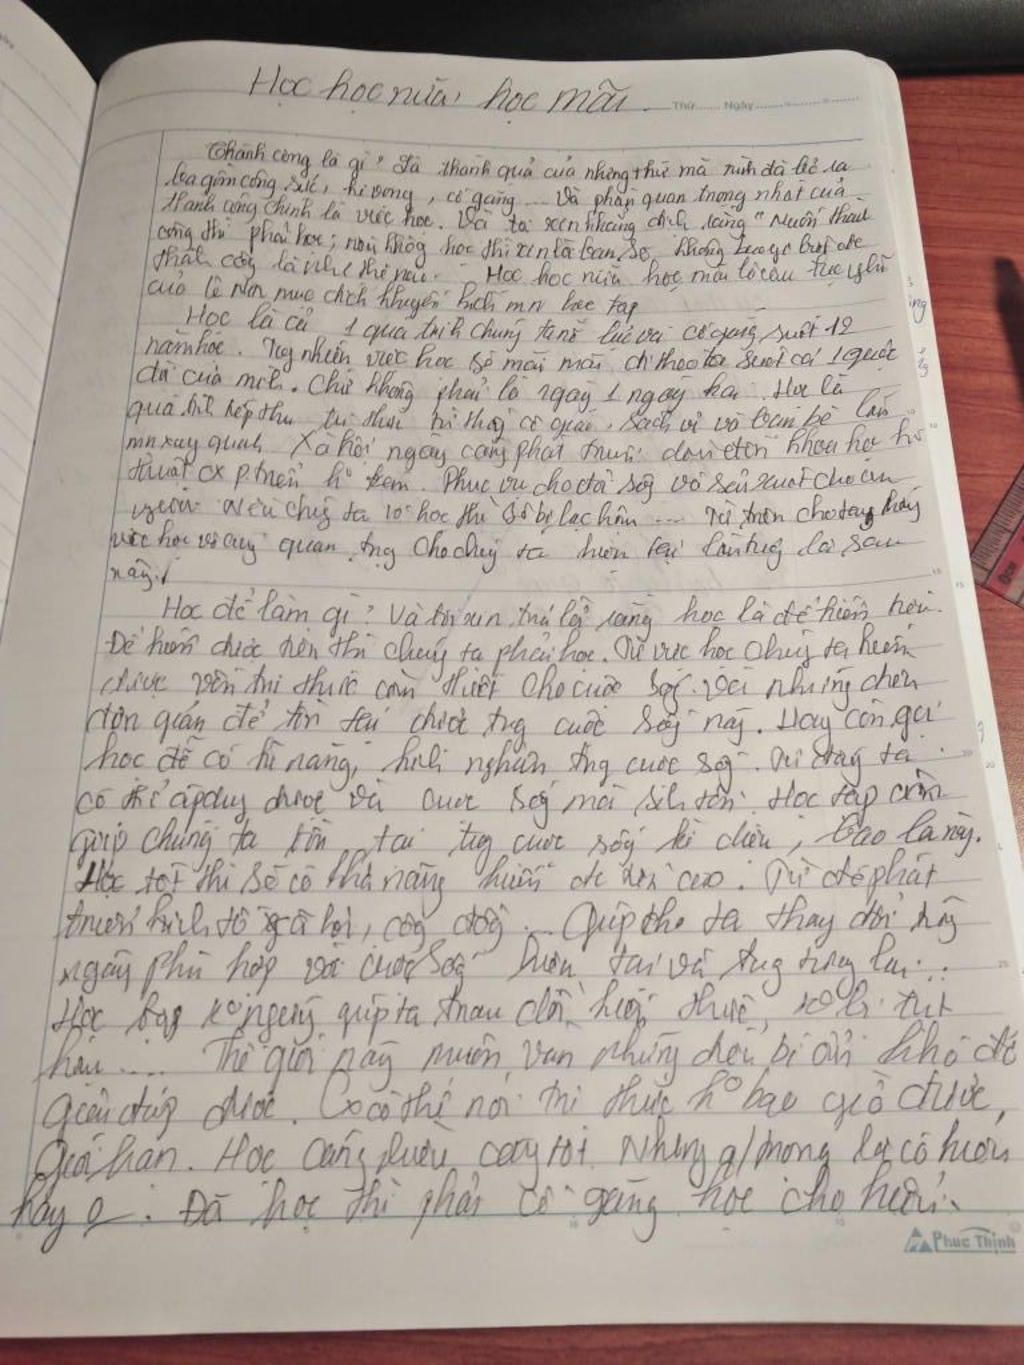 Học học nữa, học mãi. Thứ...... Ngày..............
Thành công là gì? Là thành quả của những thứ mà mình đã bỏ ra
bao gồm công sức, hi vọng, cố gắng... Và phần quan trọng nhất của
thành công chính là việc học. Và tôi xin khẳng định rằng " Muốn thành
công thì phải học; nếu không học thì xin là không
thành công là như thế nào. Học học nữa học mãi là câu
của Lê Nin mục đích khuyến khích mn học tập
Học là cả 1 quá trình chúng ta nỗ lực và cố gắng suốt 12
năm học. Tuy nhiên việc học sẽ mãi mãi đi theo ta suốt cả 1 cuộc
đời của mình. Chứ không phải là ngày 1 ngày hai. Học là
quá trình tiếp thu tri thức từ thầy cô giáo, sách vở và bạn bè lẫn
mn xung quanh. Xã hội ngày càng phát triển khoa học kĩ
thuật cx p.triển k kém. Phục vụ cho đời sống và sản xuất cho con
người. Nếu chúng ta k học thì sẽ bị lạc hậu ... Từ trên cho ta thấy
việc học vô cùng quan trọng cho chúng ta hiện tại lẫn tương lai sau
này.
Học để làm gì? Và tôi xin trả lời rằng học là để hiểu biết.
Để hiểu được thì chúng ta phải học. Từ việc học chúng ta hiểu
được vốn tri thức cần thiết cho cuộc sống. Với những điều
đơn giản để tồn tại được trong cuộc sống này. Hay còn gọi
học để có kĩ năng, kinh nghiệm trong cuộc sống. Từ đấy ta
có thể áp dụng được vào cuộc sống mà sinh tồn. Học tập còn
giúp chúng ta tồn tại trong cuộc sống kì diệu, bao la này.
Học tốt thì sẽ có khả năng hiểu cao. Từ đó phát
triển kinh tế xã hội, cộng đồng ... Giúp cho ta thay đổi từng
ngày phù hợp với cuộc sống hiện tại và trong tương lai...
Học tập k ngừng giúp ta trau dồi kiến thức, k bị tụt
hậu ..... Thế giới này muôn vàn những điều bí ẩn khó để
giải đáp được. Có thể nói tri thức k bao giờ được
giới hạn. Học càng nhiều càng tốt. Nhưng q/trọng là có hiểu
hay o. Đã học thì phải cố gắng học cho hiểu.
Phuc Thinh